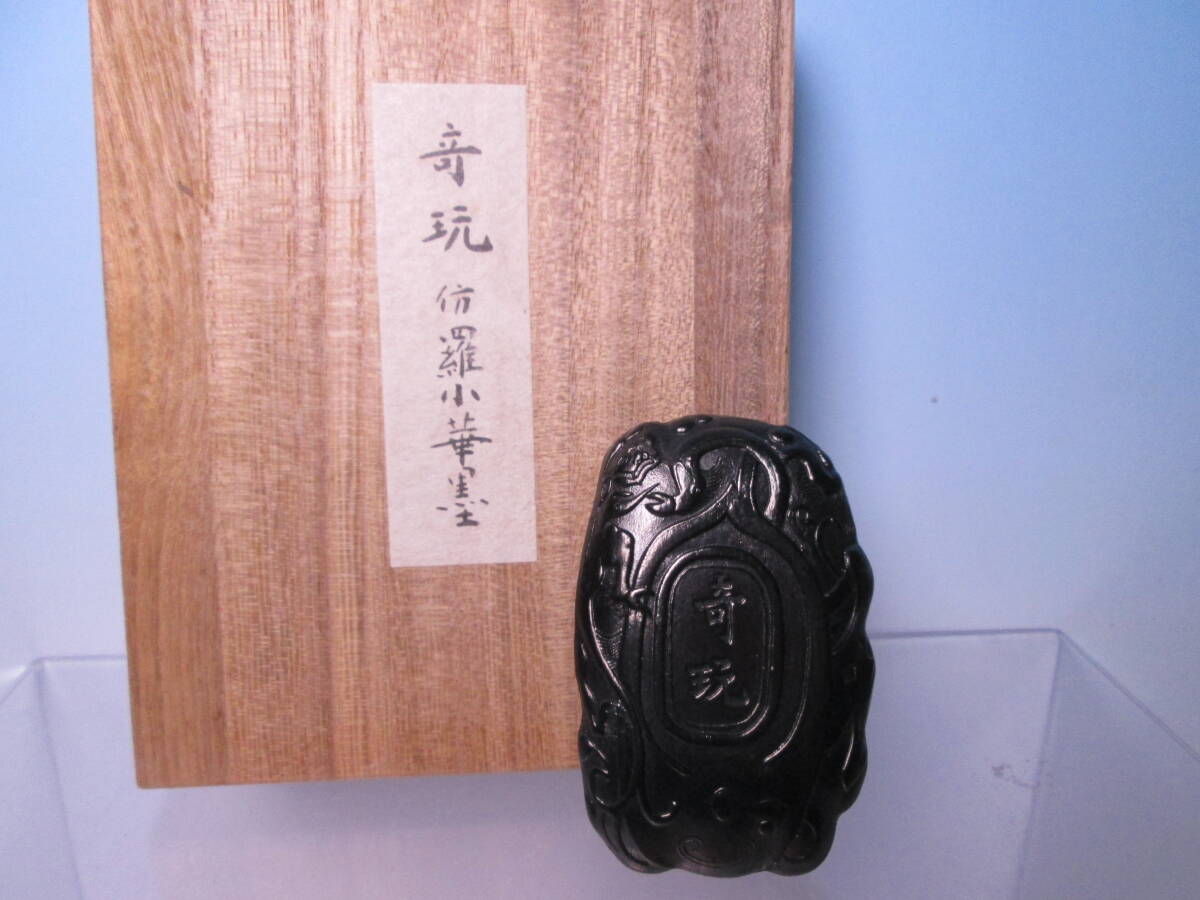 奇玩 仿羅小華墨
奇玩